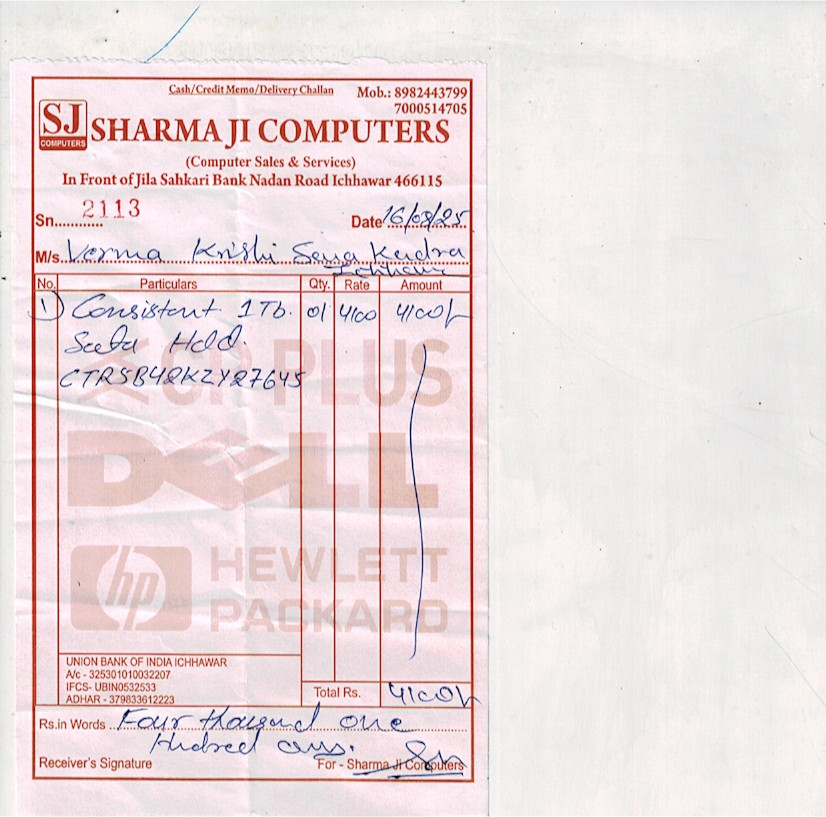 Cash/Credit Memo/Delivery Challan
Mob.: 8982443799
7000514705
SJ
COMPUTERS
SHARMA JI COMPUTERS
(Computer Sales & Services)
In Front of Jila Sahkari Bank Nadan Road Ichhawar 466115
Sn............ 2113 Date 16/08/25
M/s. Verma Krishi Seva Kendra
Ichhawar
No. Particulars Qty. Rate Amount
1) Consistent 1 Tb. 01 4100 4100/-
Sata Hdd.
CTRSB42KZY27645
CP PLUS
DELL
hp HEWLETT
PACKARD
UNION BANK OF INDIA ICHHAWAR
A/c - 325301010032207
IFCS- UBIN0532533
ADHAR - 379833612223
Total Rs. 4100/-
Rs.in Words Four thousand one
Hudred
Receiver's Signature For - Sharma Ji Computers